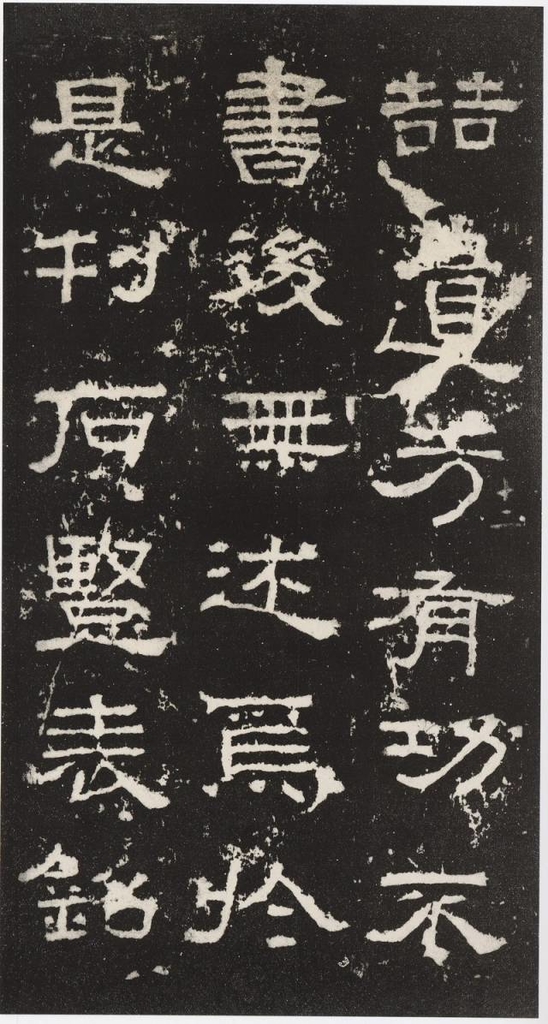 喆遺芳有功不
書後無述焉於
是刊石豎表銘
十二